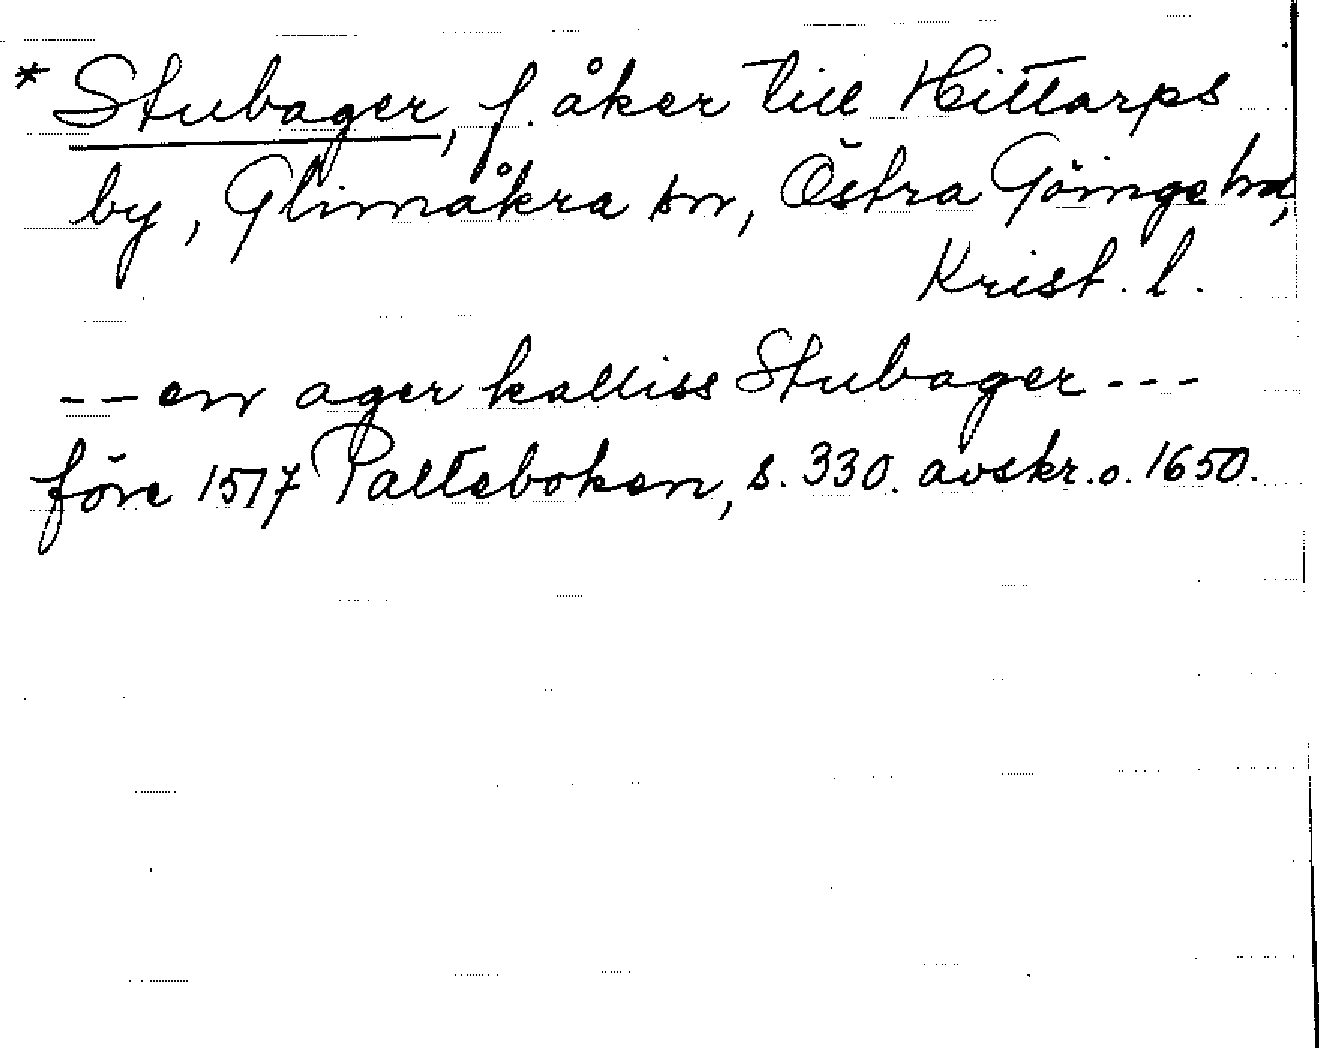 * Stubager, f. åker till Hittarps
by, Glimåkra sn, Östra Göinge hd,
Krist. l.
-- en ager kalliss Stubager ---
före 1517 Palteboken, s. 330. avskr. o. 1650.